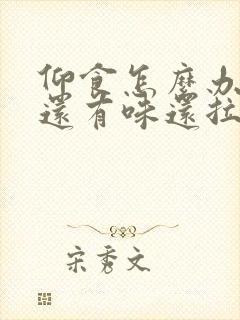 仰食怎麽办
還有味還拉
宋秀文